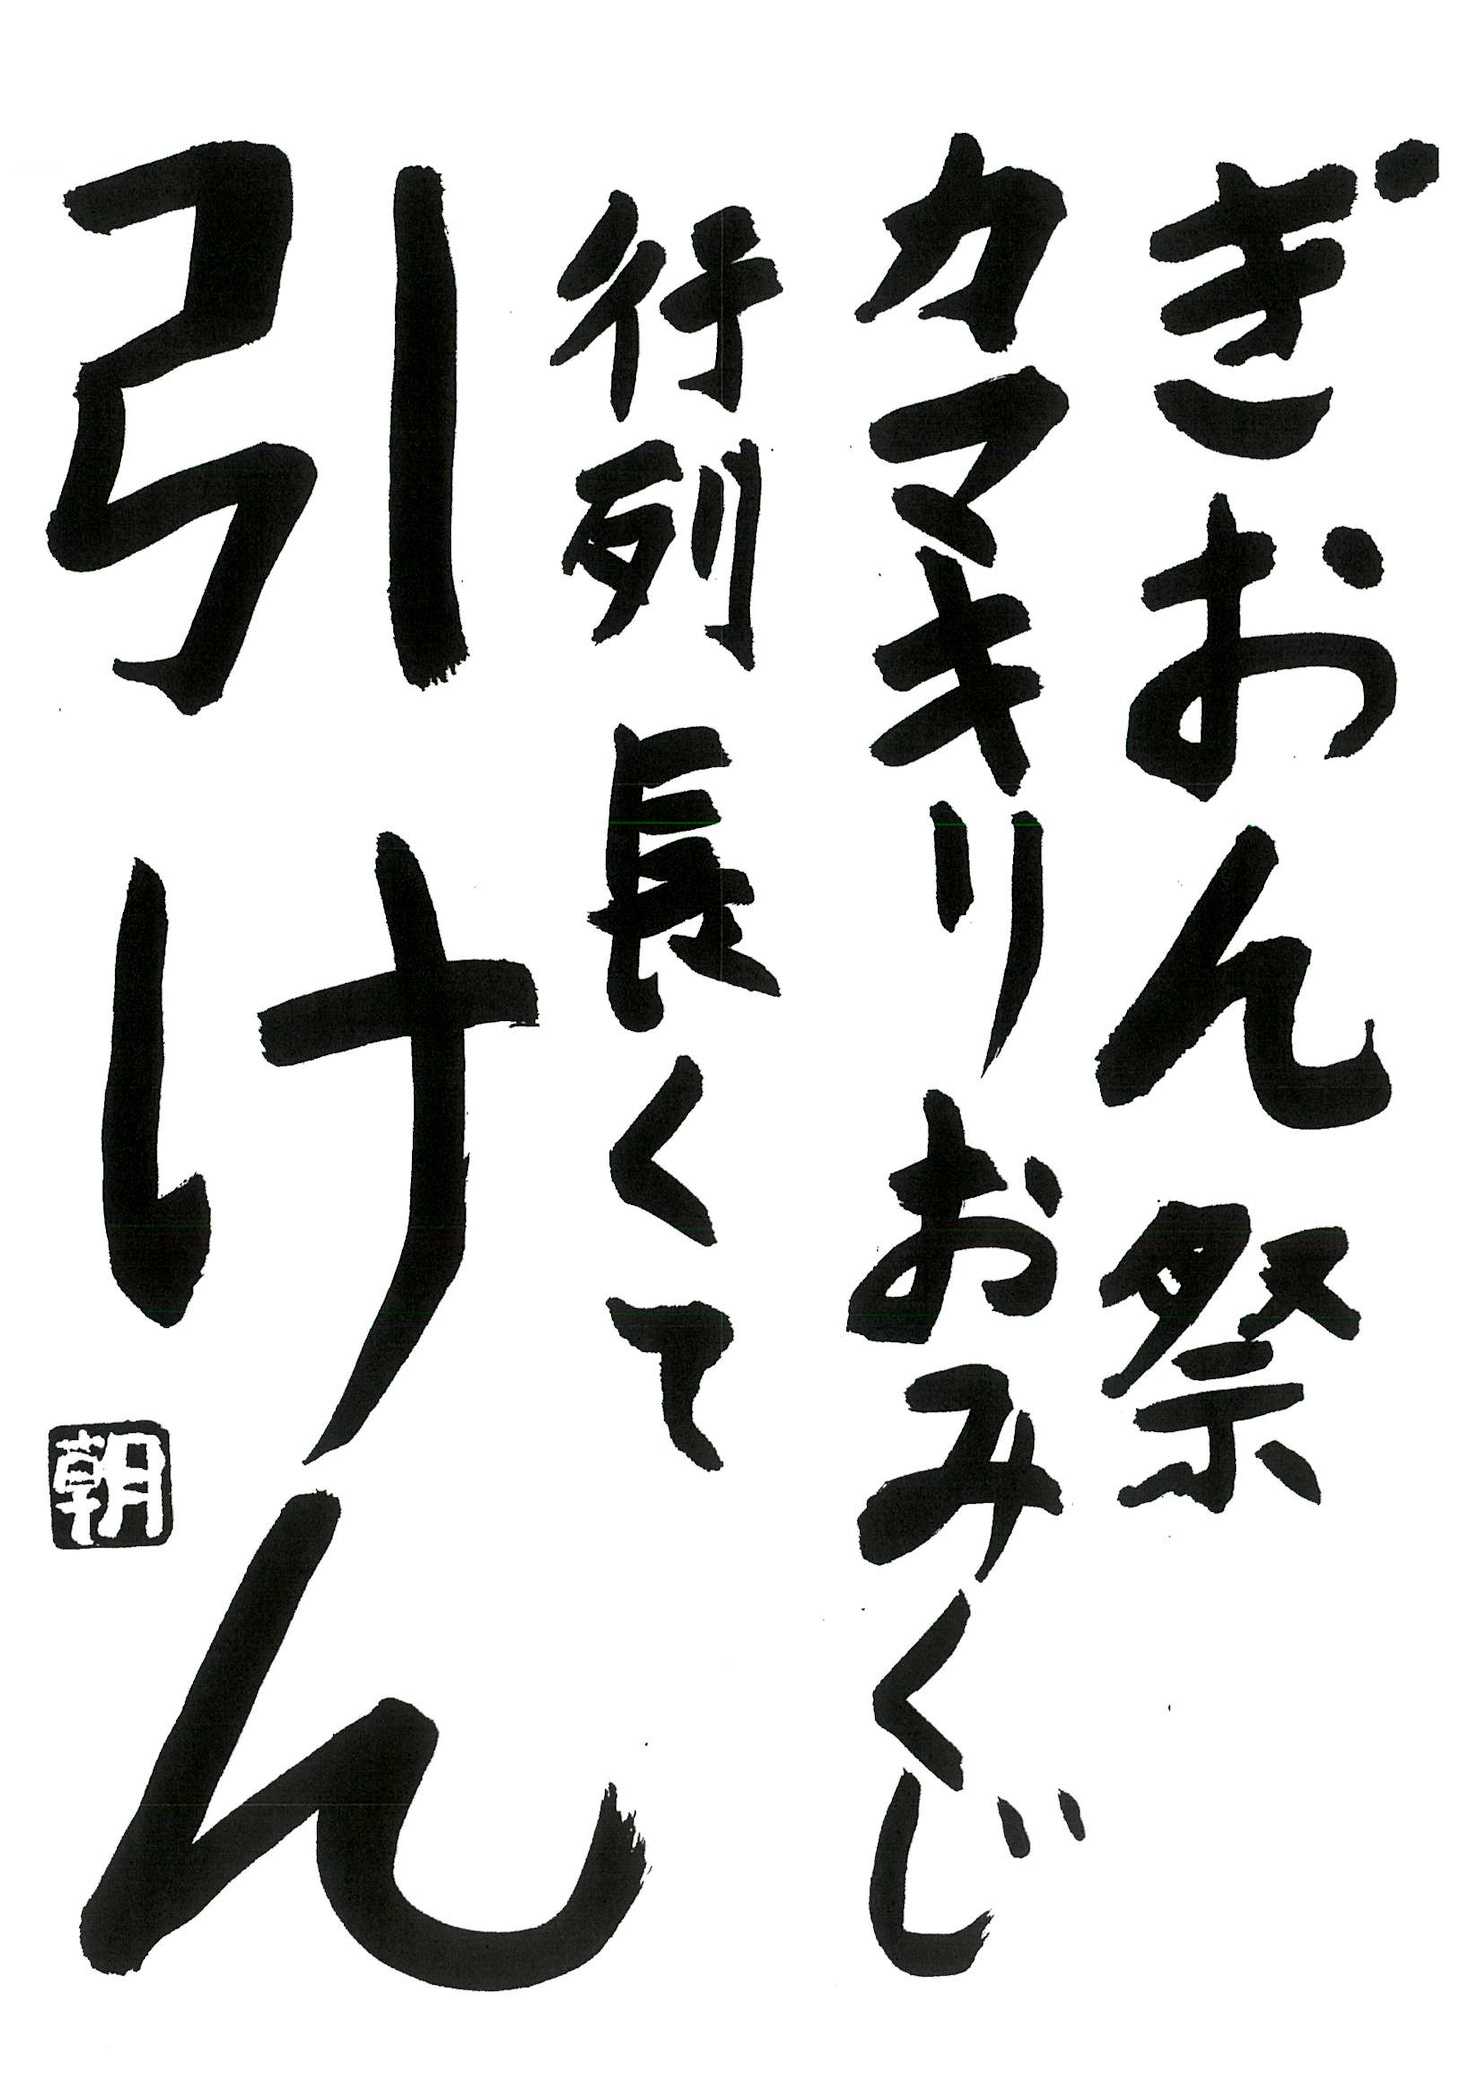 ぎおん祭
カマキリおみくじ
行列長くて
引けん
朝